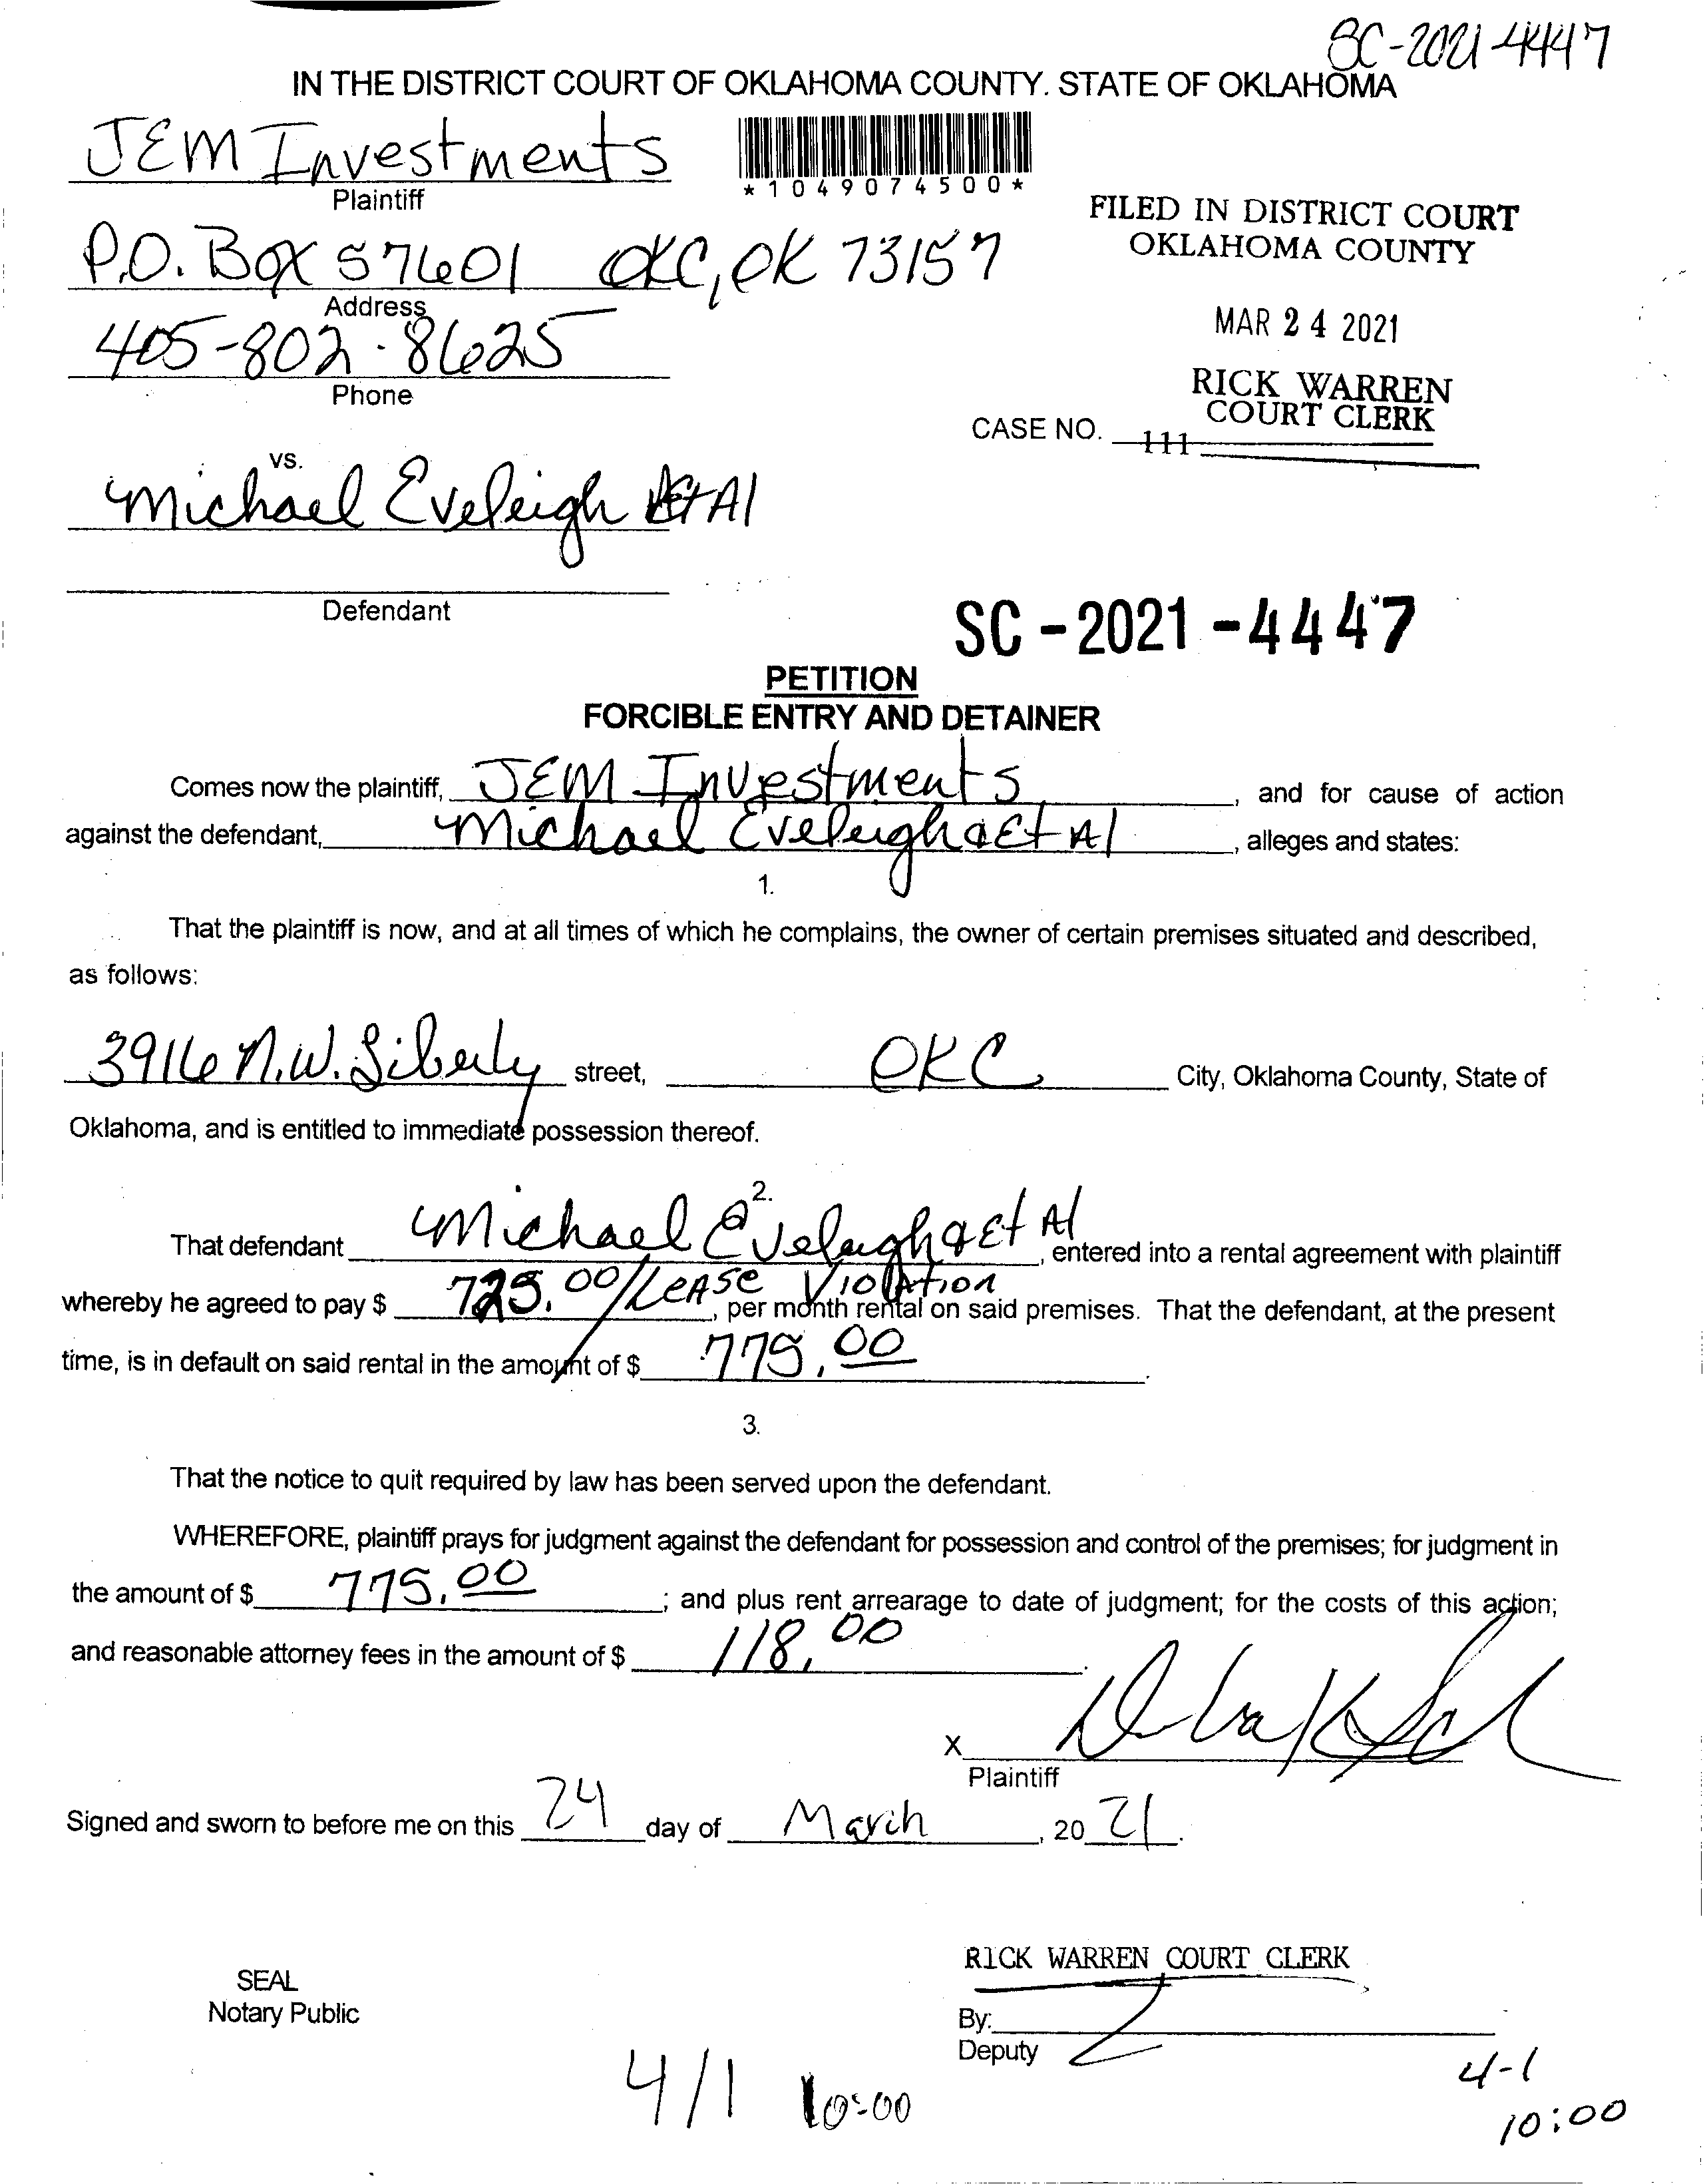 SC-2021-4447
IN THE DISTRICT COURT OF OKLAHOMA COUNTY. STATE OF OKLAHOMA
JEM Investments
Plaintiff
*1049074500*
FILED IN DISTRICT COURT
OKLAHOMA COUNTY
P.O. Box 57601 OKC, OK 73157
Address
MAR 24 2021
405-802-8625
Phone
RICK WARREN
COURT CLERK
CASE NO.
111
vs.
Michael Eveleigh Et Al
Defendant
SC-2021-4447
PETITION
FORCIBLE ENTRY AND DETAINER
Comes now the plaintiff, JEM Investments, and for cause of action
against the defendant, Michael Eveleigh Et Al, alleges and states:
1.
That the plaintiff is now, and at all times of which he complains, the owner of certain premises situated and described,
as follows:
3916 N.W. Liberty street, OKC City, Oklahoma County, State of
Oklahoma, and is entitled to immediate possession thereof.
2.
That defendant Michael Eveleigh Et Al, entered into a rental agreement with plaintiff
whereby he agreed to pay $ 725.00/Lease Violation, per month rental on said premises. That the defendant, at the present
time, is in default on said rental in the amount of $ 775.00.
3.
That the notice to quit required by law has been served upon the defendant.
WHEREFORE, plaintiff prays for judgment against the defendant for possession and control of the premises; for judgment in
the amount of $ 775.00; and plus rent arrearage to date of judgment; for the costs of this action;
and reasonable attorney fees in the amount of $ 118.00.
X
Plaintiff
Signed and sworn to before me on this 24 day of March, 20 21.
RICK WARREN COURT CLERK
SEAL
Notary Public
By:
Deputy
4/1 10:00
4-1
10:00